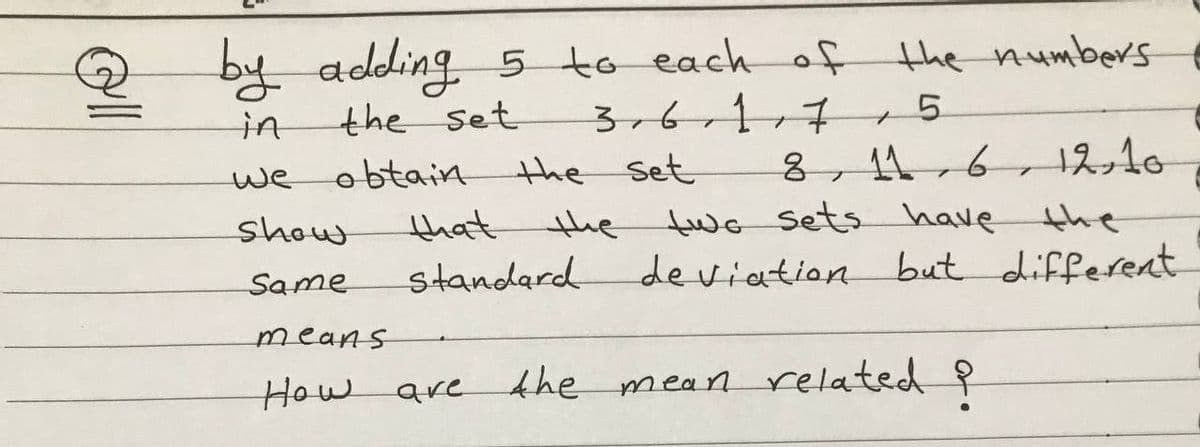 Q2 by adding 5 to each of the numbers
in the set 3, 6, 1, 7, 5
we obtain the set 8, 11, 6, 12, 10
show that the two sets have the
same standard deviation but different
means.
How are the mean related ?